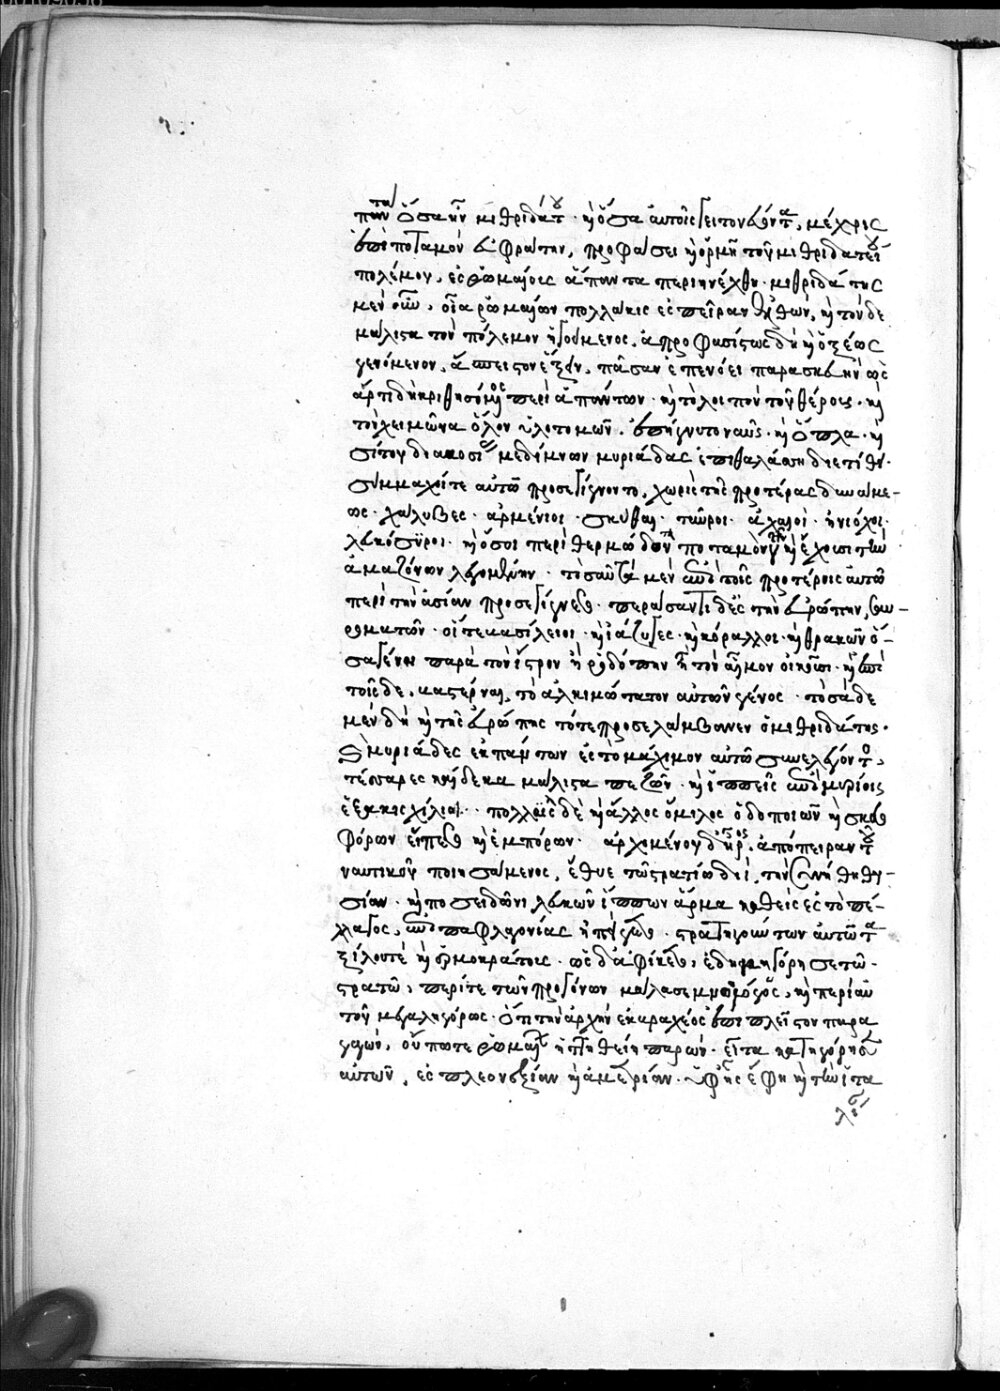 πάντα ὅσα ἦν μιθριδάτου· καὶ ὅσα αὐτοῖς γειτονεύοντα, μέχρις
ἐπὶ ποταμὸν εὐφράτην, προφάσει καὶ ὁρμῇ τοῦ μιθριδατείου
πολέμου, ἐς ῥωμαίοις ἅπαντα περιηνέχθη· μιθριδάτης
μὲν οὖν, οἷα ῥωμαίων πολλάκις ἐς πεῖραν ἐλθών, καὶ τόνδε
μάλιστα τὸν πόλεμον ἡγούμενος, ἀπροφασίστως δὴ καὶ ὀξέως
γενόμενον, ἄπειστον ἕξειν, πᾶσαν ἐπενόει παρασκευὴν ὡς
ἄρτι δὴ κριθησόμενος περὶ ἁπάντων· καὶ τὸ λοιπὸν τοῦ θέρους· καὶ
τὸν χειμῶνα ὅλον ὑλοτομῶν, ἐπήγνυτο ναῦς· καὶ ὅπλα· καὶ
σίτου διακοσίας μεδίμνων μυριάδας ἐπὶ θαλάσσῃ διετίθει·
σύμμαχοί τε αὐτῷ προσεγίγνοντο, χωρὶς τῆς προτέρας δυνάμε-
ως· χάλυβες· ἀρμένιοι· σκύθαι· ταῦροι· ἀχαιοί· ἡνίοχοι·
λευκόσυροι· καὶ ὅσοι περὶ θερμώδοντα ποταμὸν γῆν ἔχουσι τὴν
ἀμαζόνων λεγομένην· τοσαῦτα μὲν ἐπὶ τοῖς προτέροις αὐτῷ
περὶ τὴν ἀσίαν προσεγίγνετο· περάσαντι δ' ἐς τὴν εὐρώπην, σαυ-
ροματῶν· οἵ τε βασίλειοι· καὶ ἰάζυγες· καὶ κόραλλοι· καὶ θρακῶν ὅ-
σα γένη παρὰ τὸν ἴστρον ἢ ῥοδόπην ἢ τὸν αἷμον οἰκοῦσι· καὶ ἐπὶ
τοῖσδε, βαστέρναι, τὸ ἀλκιμώτατον αὐτῶν γένος· τοσάδε
μὲν δὴ καὶ τῆς εὐρώπης τότε προσελάμβανεν ὁ μιθριδάτης·
καὶ μυριάδες ἐκ πάντων ἐς τὸ μάχιμον αὐτῷ συνελέγοντο,
τέσσαρες καὶ δέκα μάλιστα πεζῶν· καὶ ἱππεῖς ἐπὶ μυρίοις
ἑξακισχίλιοι· πολὺς δὲ καὶ ἄλλος ὅμιλος ὁδοποιῶν καὶ σκευο
φόρων εἵπετο καὶ ἐμπόρων· ἀρχομένου δ' ἦρος, ἀπόπειραν τοῦ
ναυτικοῦ ποιησάμενος, ἔθυε τῷ στρατίῳ διί, τὴν συνήθη θυ-
σίαν· καὶ ποσειδῶνι λευκῶν ἵππων ἅρμα καθεὶς ἐς τὸ πέ-
λαγος, ἐπὶ παφλαγονίας ἠπείγετο· στρατηγούντων αὐτῷ τα
ξίλου τε καὶ ἑρμοκράτους· ὡς δ' ἀφίκετο, ἐδημηγόρησε τῷ
στρατῷ, περί τε τῶν προγόνων μάλα σεμνολόγως, καὶ περὶ αὑ
τοῦ μεγαληγόρως· ὅτι τὴν ἀρχὴν ἐκ βραχέος ἐπὶ πλεῖστον παρα
γαγών, οὔποτε ῥωμαίων ἡττηθείη παρών· εἶτα κατηγόρησεν
αὐτῶν, ἐς πλεονεξίαν καὶ ἀμετρίαν· ὑφ' ἧς ἔφη καὶ τὴν ἰτα